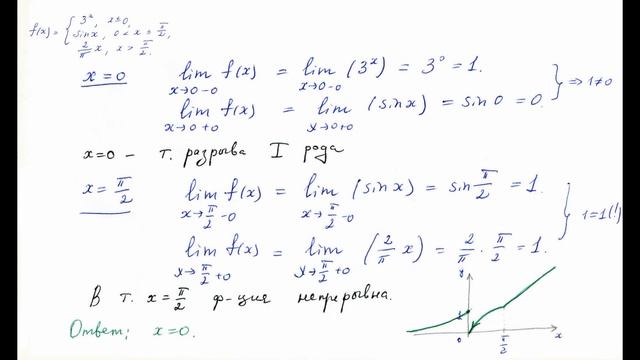 f(x) = { 3ˣ, x ≤ 0,
sin x, 0 < x ≤ π/2,
2/π x, x > π/2.
x = 0 lim x→0-0 f(x) = lim x→0-0 (3ˣ) = 3⁰ = 1.
lim x→0+0 f(x) = lim x→0+0 (sin x) = sin 0 = 0. } ⇒ 1≠0
x=0 – т. разрыва I рода
x = π/2 lim x→π/2-0 f(x) = lim x→π/2-0 (sin x) = sin π/2 = 1.
lim x→π/2+0 f(x) = lim x→π/2+0 (2/π x) = 2/π · π/2 = 1. } 1=1(!)
В т. x = π/2 ф-ция непрерывна.
Ответ: x=0.
y
1
0
π/2
x